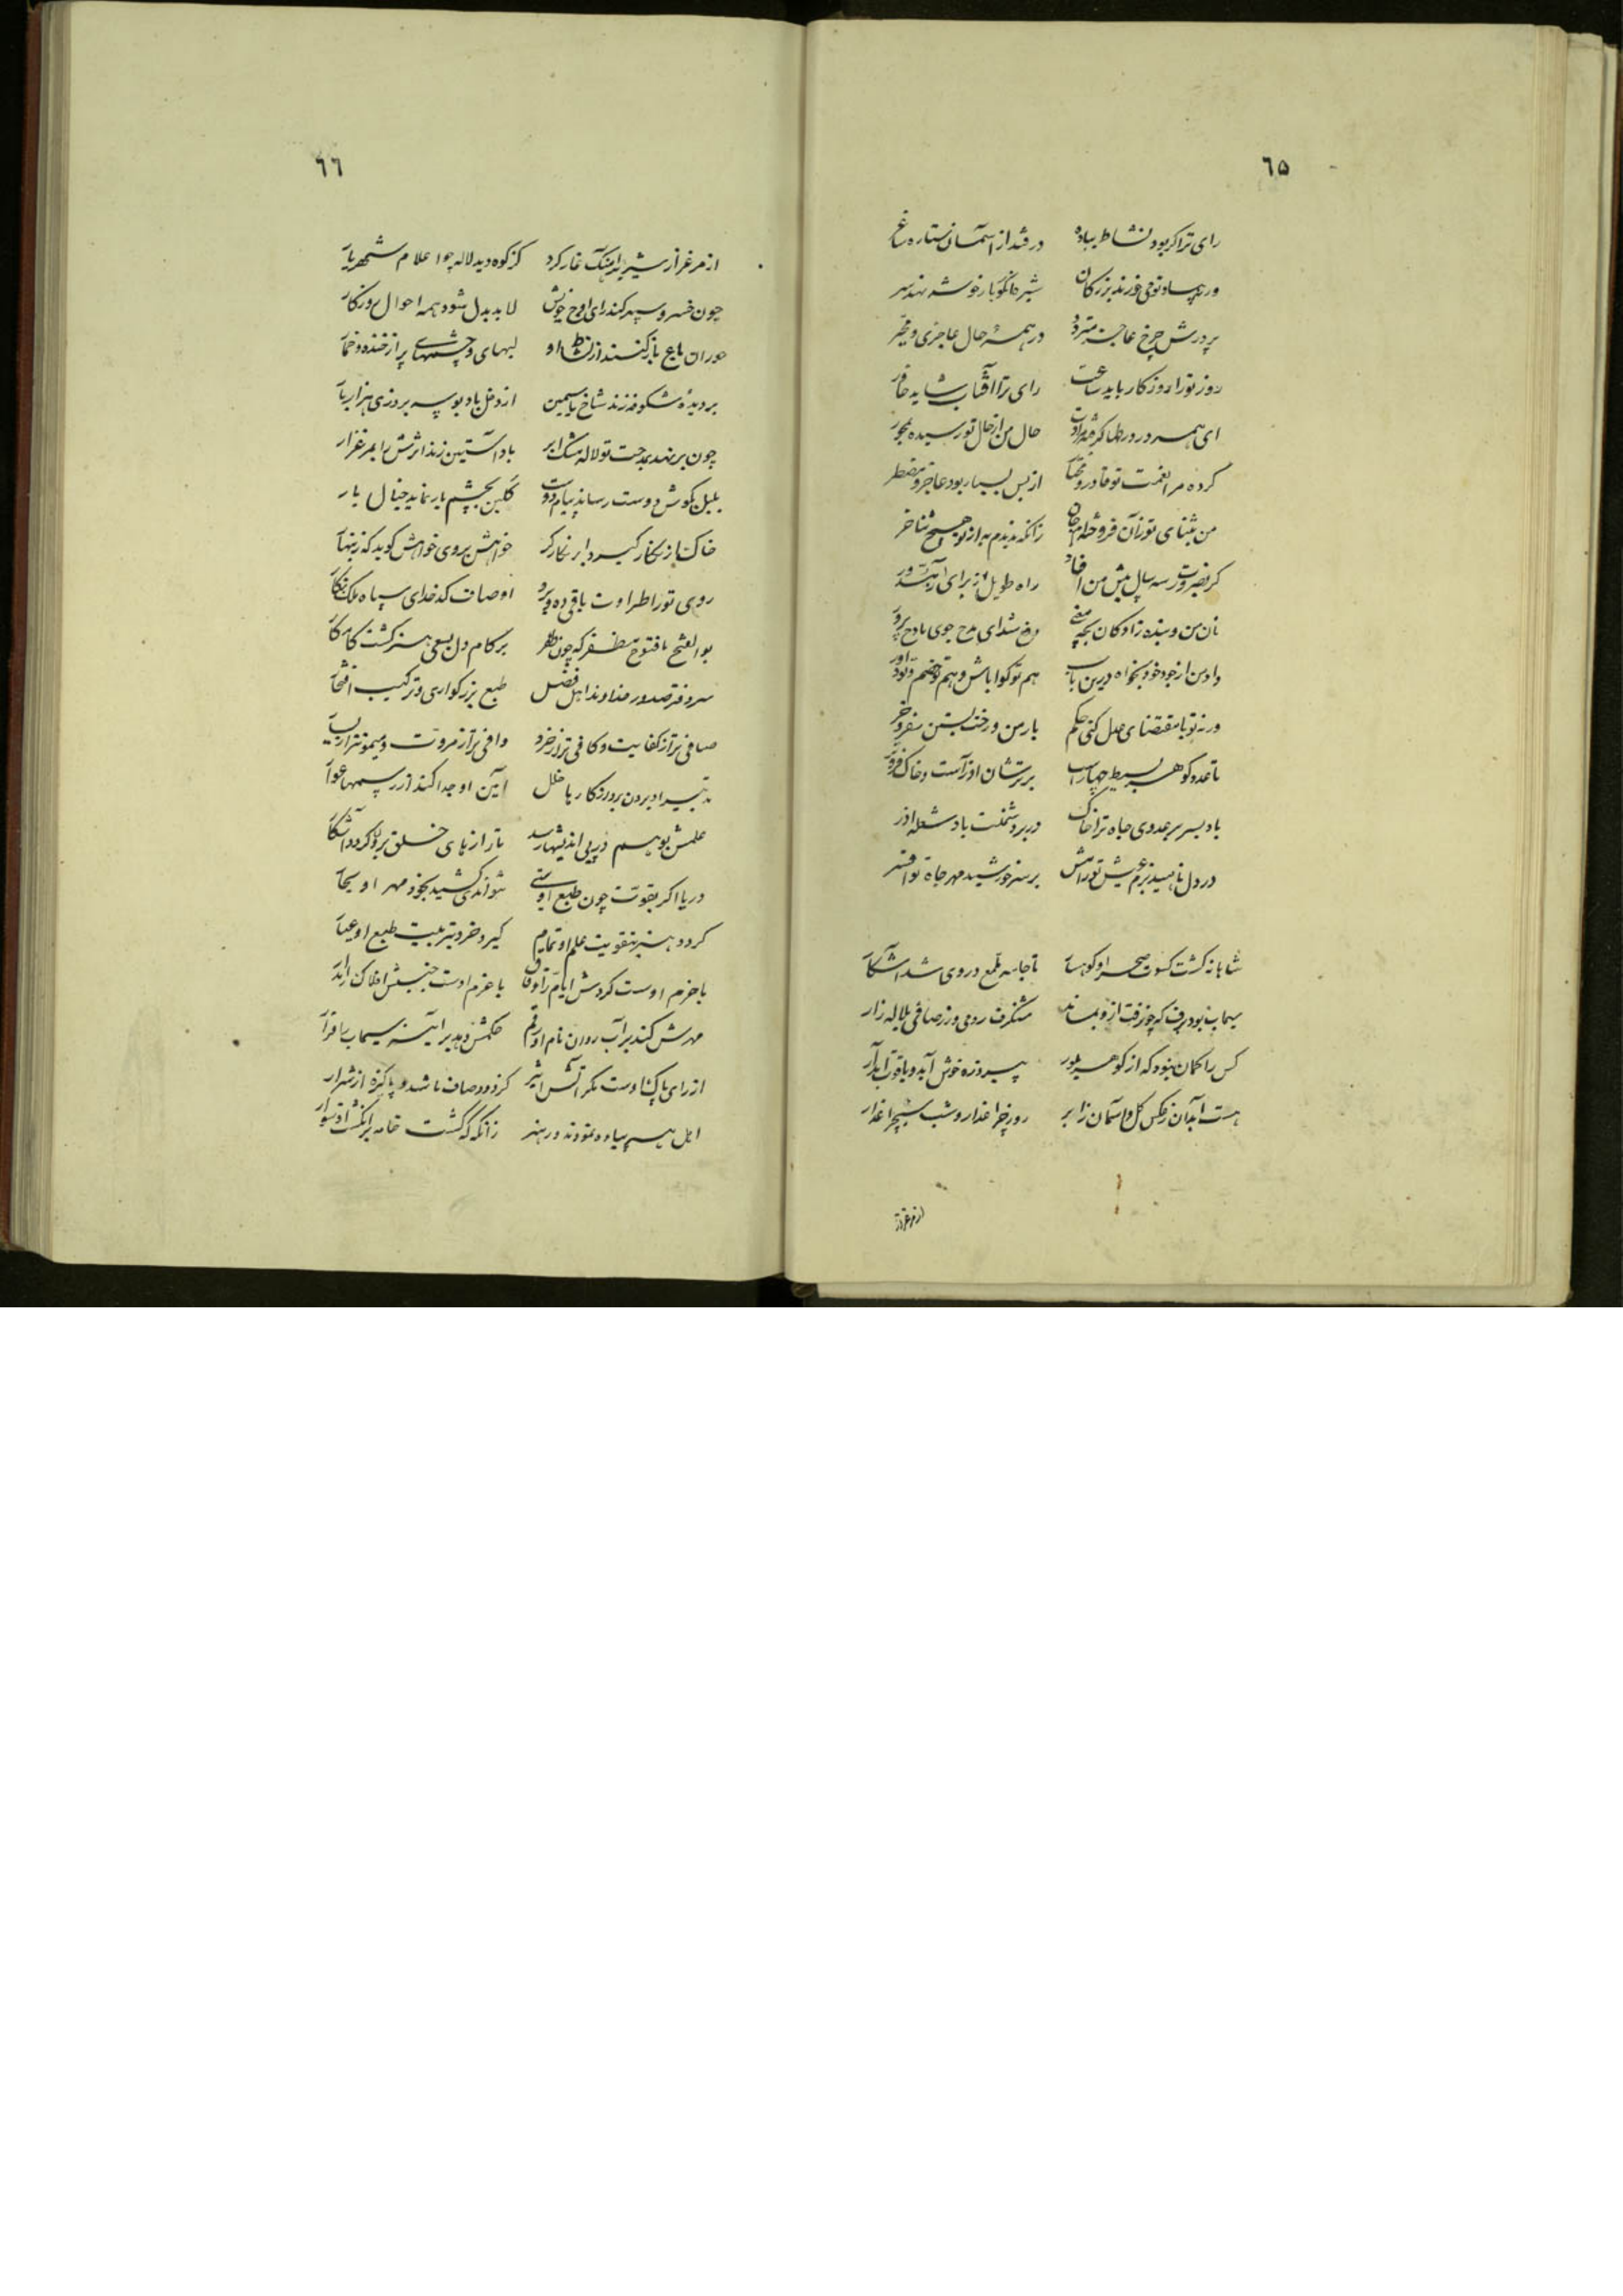 ٦۵
رای ترا کر بود نشاط بباده در فتد از آسمان ستاره بساغر
ور بچه ساو تومی خورند بزرکان شیر خوشه نهد سر
پردرش چرخ عاجز در همه حال عاجزی و مخیر
روز تو را روزکار باید ساعت رای ترا آفتاب شاید خاور
ای همه در حال من از حال تو رسیده
کرده مرا نعمت تو قادر و مختا از پس بسیار بود عاجز و مضطر
من بثنای تو زآن فروخته ام جان زانکه ندیدم به از تو هیچ ثناخر
کر بضرورت سه سال پیش من افتاد راه طویل از برای
نان من و بنده زادکان مدح جوی مادح پرور
داد من از جود خود بخواه درین باب هم تو کوا باش و هم تو خصم و تو داور
ورنه تو با مقتضای عدل کنی حکم بار من و رخت بستن سفر و خر
تا عدد کوهر بسیط چهارست برترشان آذر است و خاک فروتر
باد بسر بر عدوی جاه ترا خاک در بر دشمنت باد شعله آذر
در دل ناهید بزم عیش تو رامش بر سر خورشید مهر جاه تو افسر
شاهانه کشت کسوت صحرا و کوهسا تا جامه ملمع در وی شد آشکا
سیماب بود برف که چون رفت از و بماند شنکرف رومی و زر صافی بلاله زار
کس را کمان نبود که از کوهر بلور پیروزه خوش آید و یاقوت آبدار
هست آبدان ز عکس کل و آسمان ز ابر روز چراغدار و شب
از مرغزار
٦٦
از مرغزار شیر بدآهنک غار کرد کز کوه دید لاله چو اعلام شهریا
چون خسرو سپهر کند رای اوج خویش لابد بدل شود همه احوال روزکار
حوران باغ باز کنند از نشاط او لبهای و چشمهای پر از خنده و خما
بر دیده شکوفه زند شاخ یاسمین از دخل باد بوسه بروزی هزار با
چون بر نهد بدست تو لاله مشک ابر باد آستین زند اثرش را بمرغزار
بلبل بکوش دوست رساند پیام دوست کلبن بچشم یار نماید خیال یار
خاک از نکار کیرد و ابر نکارکر خواهش بروی خواهش کوید که زینها
روی تو را طراوت باقی ده اوصاف کدخدای سپاه ملک نکا
بوالفتح با فتوح مظفر که چون ظفر بر کام دل بسعی هنر کشت کامکا
سر دفتر صدور خداوند اهل فضل طبع بزرکواری و ترکیب افتخا
صافی تر از کفایت و کافی تر از خرد وافی تر از مروت و میمونتر از
تدبیر او بردن بر روزکار با خلل آیین او جدا کند از رسمها عوا
علمش بوهم در پی اندیشها رسد تا راز های خلق برو کردد آشکا
دریا اکر بقوت چون طبع اوستی نتواندی کشید بخود مهر او بخا
کردد هنر بتقویت علم او تمام کیرد خرد بتربیت طبع او عیا
با حزم اوست کردش ایام را وفا با عزم اوست جنبش افلاک را مدا
مهرش کند بر آب روان نام او رقم حکمش دهد بر آینه سیماب را قرا
از رای پاک اوست مکر آتش اثیر کز دود صاف باشد و پاکیزه از شرار
اهل هنر پیاده نمودند در هنر زانکه که کشت خامه بر انکشت او سوار